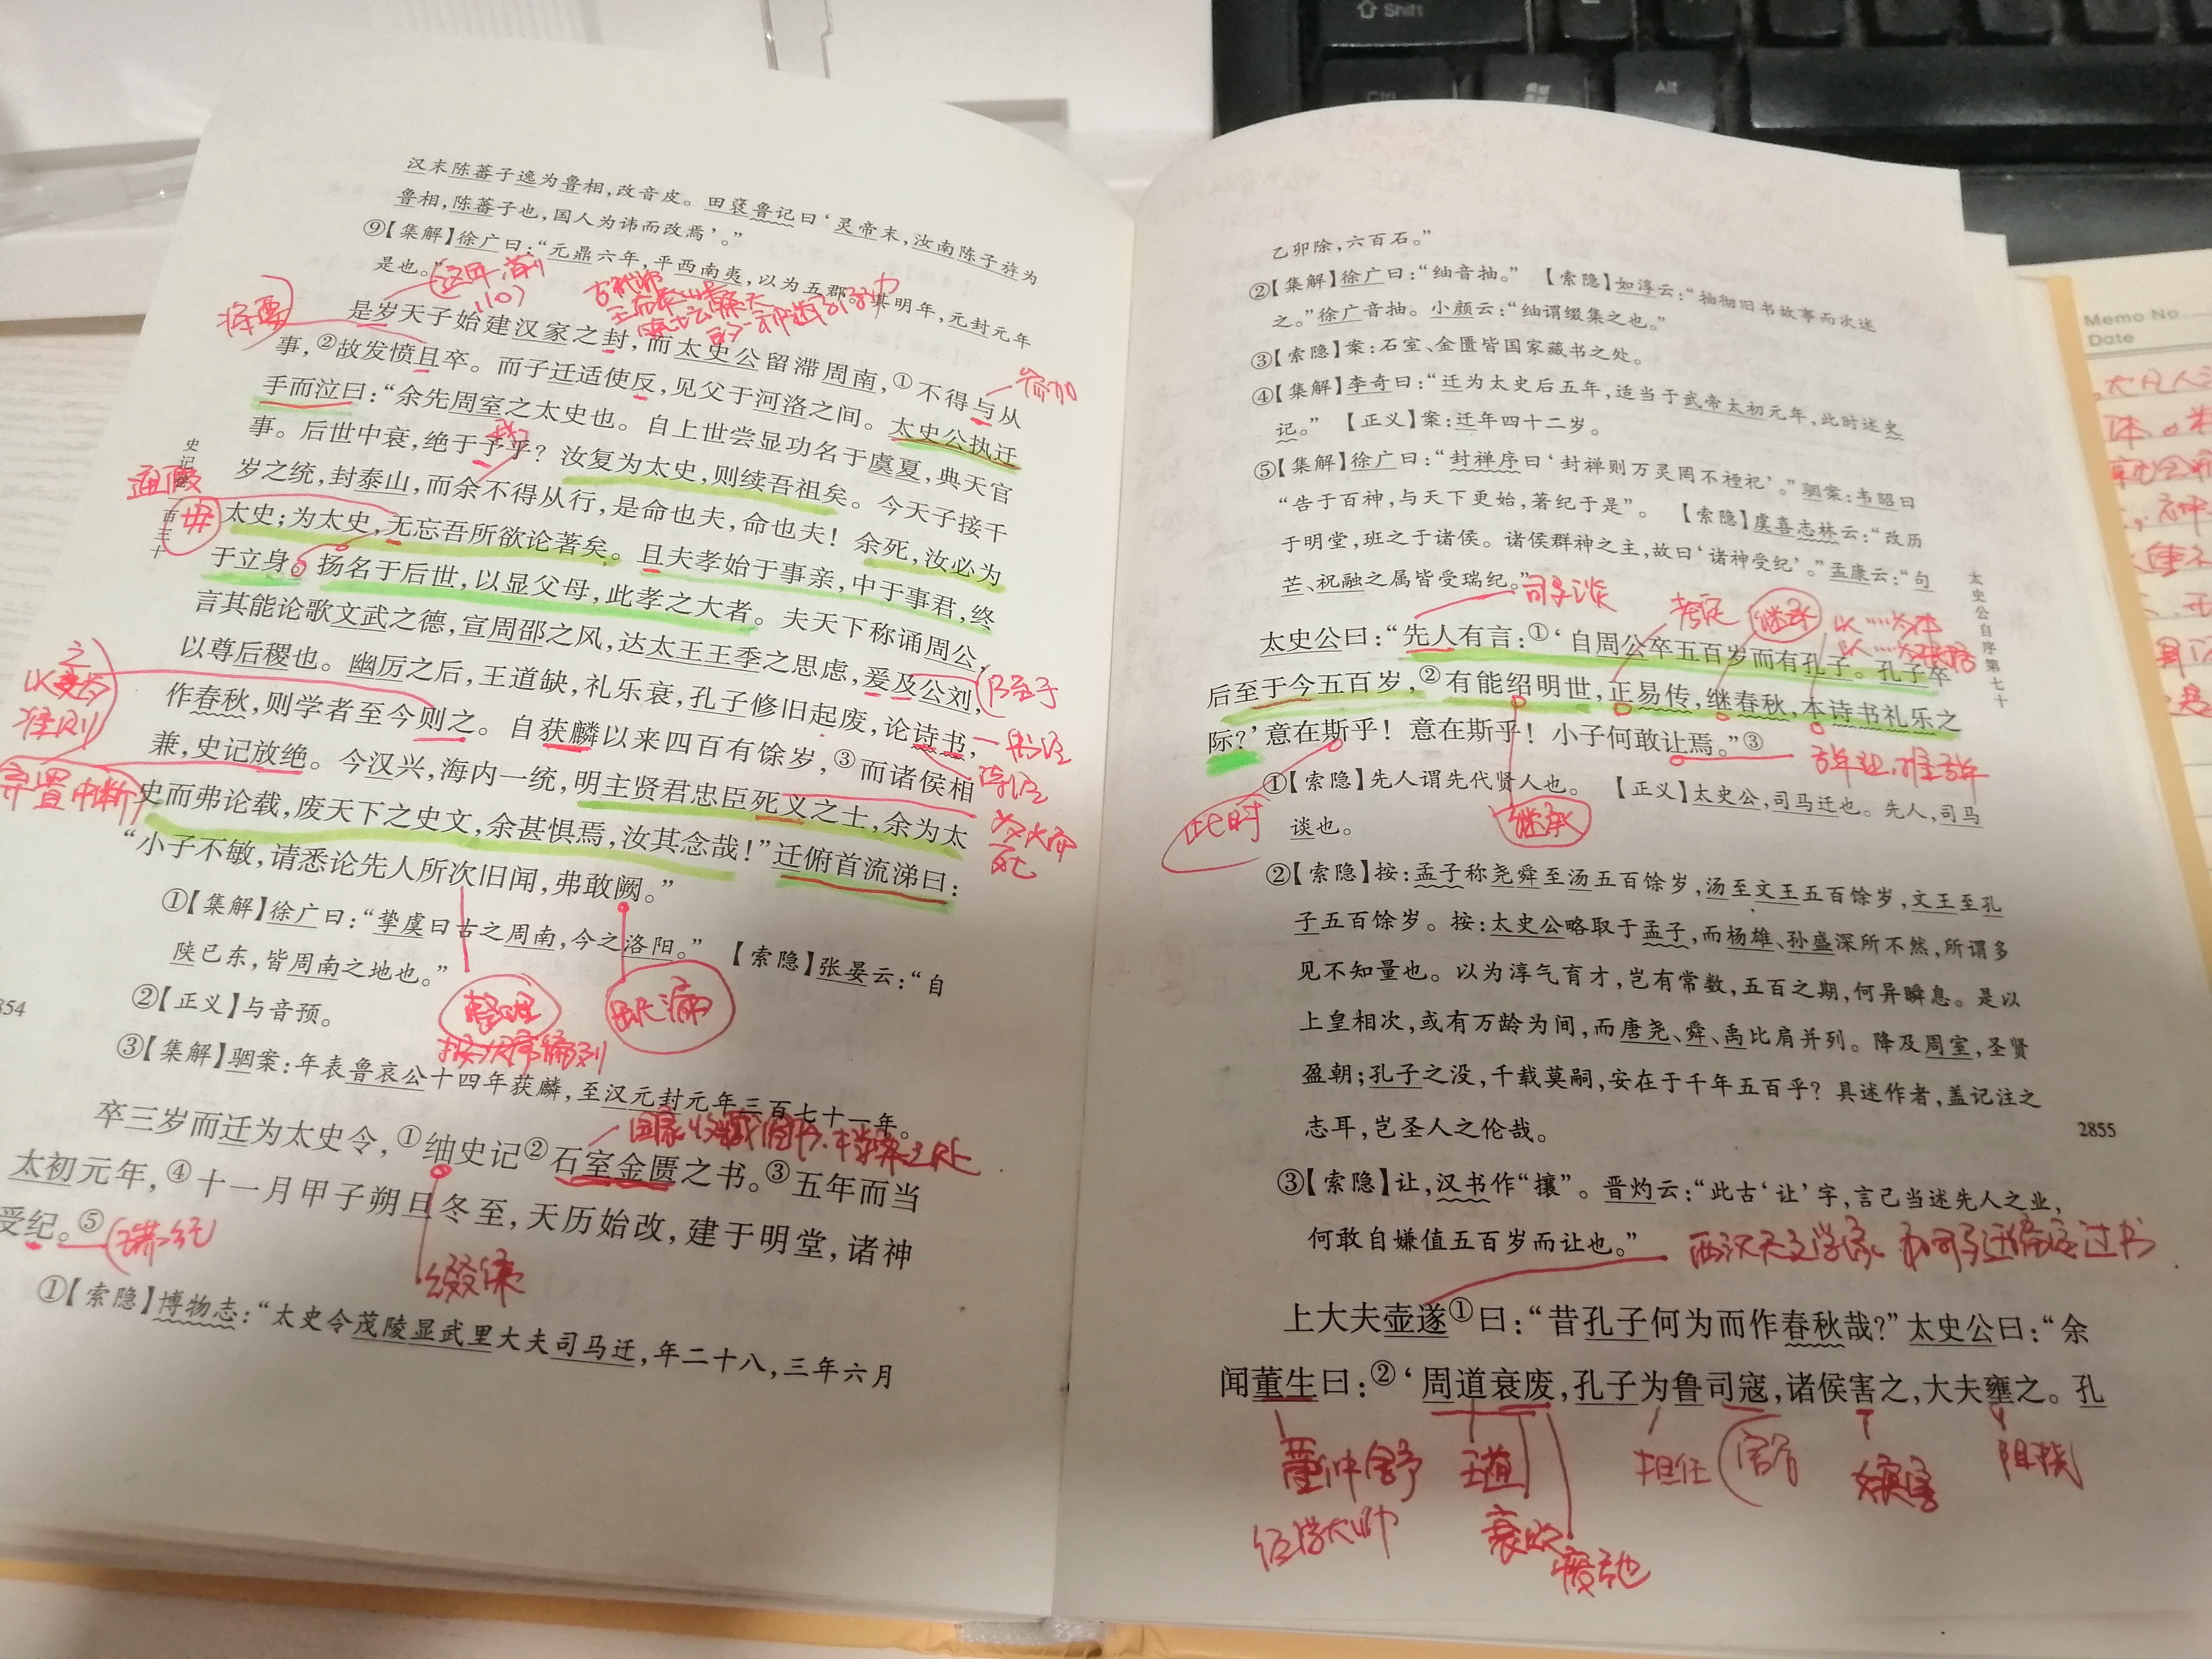 汉末陈蕃子逸为鲁相，改音皮。田褎鲁记曰‘灵帝末，汝南陈子游为
鲁相，陈蕃子也，国人为讳而改焉’。”
⑨【集解】徐广曰：“元鼎六年，平西南夷，以为五郡。其明年，元封元年
是也。”
是岁天子始建汉家之封，而太史公留滞周南，①不得与从
事，②故发愤且卒。而子迁适使反，见父于河洛之间。太史公执迁
手而泣曰：“余先周室之太史也。自上世尝显功名于虞夏，典天官
事。后世中衰，绝于予乎？汝复为太史，则续吾祖矣。今天子接千
岁之统，封泰山，而余不得从行，是命也夫，命也夫！余死，汝必为
太史；为太史，无忘吾所欲论著矣。且夫孝始于事亲，中于事君，终
于立身。扬名于后世，以显父母，此孝之大者。夫天下称诵周公，
言其能论歌文武之德，宣周邵之风，达太王王季之思虑，爰及公刘，
以尊后稷也。幽厉之后，王道缺，礼乐衰，孔子修旧起废，论诗书，
作春秋，则学者至今则之。自获麟以来四百有馀岁，③而诸侯相
兼，史记放绝。今汉兴，海内一统，明主贤君忠臣死义之士，余为太
史而弗论载，废天下之史文，余甚惧焉，汝其念哉！”迁俯首流涕曰：
“小子不敏，请悉论先人所次旧闻，弗敢阙。”
①【集解】徐广曰：“挚虞曰古之周南，今之洛阳。” 【索隐】张晏云：“自
陕已东，皆周南之地也。”
②【正义】与音预。
③【集解】骃案：年表鲁哀公十四年获麟，至汉元封元年三百七十一年。
卒三岁而迁为太史令，①䌷史记②石室金匮之书。③五年而当
太初元年，④十一月甲子朔旦冬至，天历始改，建于明堂，诸神
受纪。⑤
①【索隐】博物志：“太史令茂陵显武里大夫司马迁，年二十八，三年六月
将要
参加
我
通假
毋
乃至于
书经
诗经
弃置中断
为义而死
整理
按次序编列
缺漏
国家收藏图书、档案之处
缀集
乙卯除，六百石。”
②【集解】徐广曰：“䌷音抽。” 【索隐】如淳云：“抽彻旧书故事而次述
之。”徐广音抽。小颜云：“䌷谓缀集之也。”
③【索隐】案：石室、金匮皆国家藏书之处。
④【集解】李奇曰：“迁为太史后五年，适当于武帝太初元年，此时述史
记。” 【正义】案：迁年四十二岁。
⑤【集解】徐广曰：“封禅序曰‘封禅则万灵罔不禋祀’。”骃案：韦昭曰
“告于百神，与天下更始，著纪于是”。 【索隐】虞喜志林云：“改历
于明堂，班之于诸侯。诸侯群神之主，故曰‘诸神受纪’。”孟康云：“句
芒、祝融之属皆受瑞纪。”
太史公曰：“先人有言：①‘自周公卒五百岁而有孔子。孔子卒
后至于今五百岁，②有能绍明世，正易传，继春秋，本诗书礼乐之
际？’意在斯乎！意在斯乎！小子何敢让焉。”③
①【索隐】先人谓先代贤人也。 【正义】太史公，司马迁也。先人，司马
谈也。
②【索隐】按：孟子称尧舜至汤五百馀岁，汤至文王五百馀岁，文王至孔
子五百馀岁。按：太史公略取于孟子，而杨雄、孙盛深所不然，所谓多
见不知量也。以为淳气育才，岂有常数，五百之期，何异瞬息。是以
上皇相次，或有万龄为间，而唐尧、舜、禹比肩并列。降及周室，圣贤
盈朝；孔子之没，千载莫嗣，安在于千年五百乎？具述作者，盖记注之
志耳，岂圣人之伦哉。
③【索隐】让，汉书作“攘”。晋灼云：“此古‘让’字，言己当述先人之业，
何敢自嫌值五百岁而让也。”
上大夫壶遂①曰：“昔孔子何为而作春秋哉？”太史公曰：“余
闻董生曰：②‘周道衰废，孔子为鲁司寇，诸侯害之，大夫壅之。孔
太史公自序第七十
2855
司马谈
考定
继承
此时
继承
西汉天文学家
董仲舒
经学大师
王道
衰败
废弛
担任
嫉害
阻挠
Shift
Ctrl
Alt
Memo No.
Date